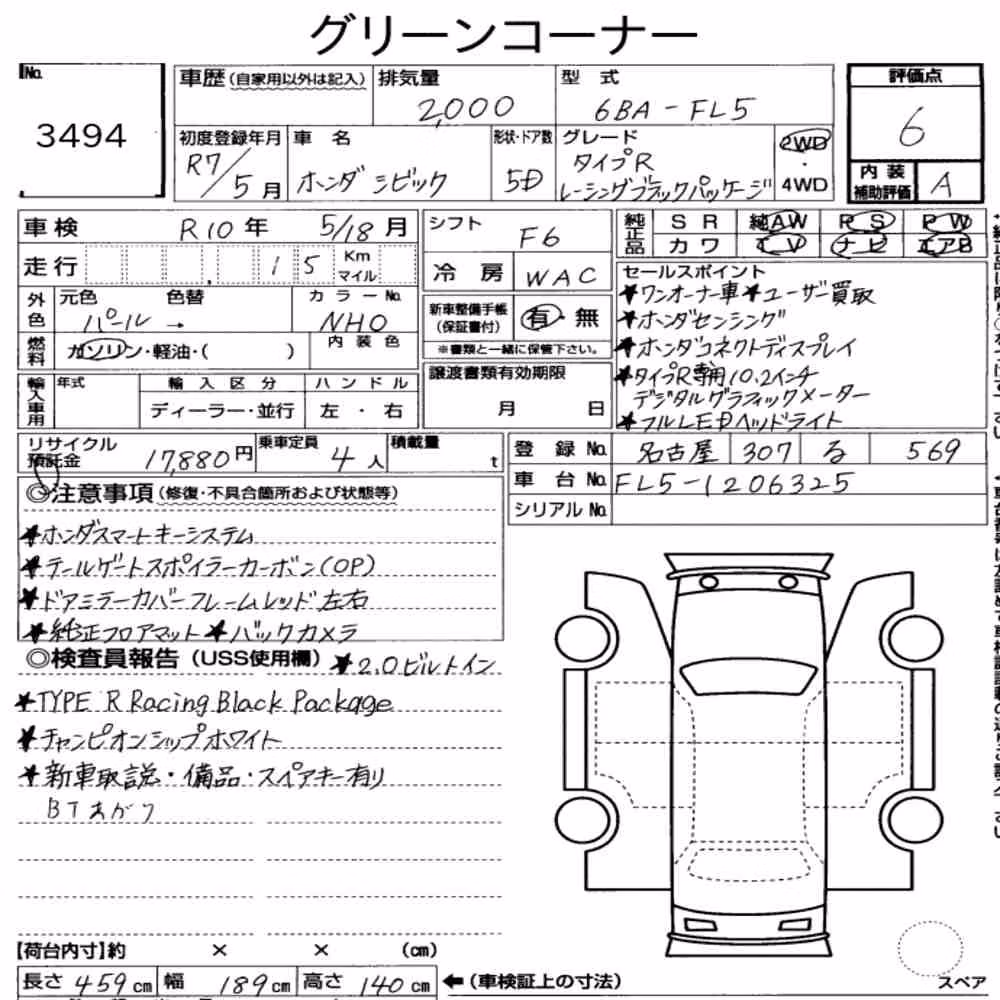 グリーンコーナー
No. 3494
車歴(自家用以外は記入) 排気量 2,000 型式 6BA-FL5 評価点 6
初度登録年月 R7/5月 車名 ホンダ シビック 形状・ドア数 5D グレード タイプR レーシングブラックパッケージ 2WD・4WD
内装補助評価 A
車検 R10年 5/18月 シフト F6 純正品 SR 純AW PS PW
カワ TV ナビ エアB
走行 15 Km マイル 冷房 WAC
外色 元色 パール → 色替 カラーNo. NH0
新車整備手帳(保証書付) 有・無
※書類と一緒に保管下さい。
燃料 ガソリン・軽油・( ) 内装色
輸入車用 年式 輸入区分 ハンドル
ディーラー・並行 左・右
譲渡書類有効期限
月 日
セールスポイント
★ワンオーナー車★ユーザー買取
★ホンダセンシング
★ホンダコネクトディスプレイ
★タイプR専用10.2インチ
デジタルグラフィックメーター
★フルLEDヘッドライト
リサイクル預託金 17,880円 乗車定員 4人 積載量 t
登録No. 名古屋 307 る 569
車台No. FL5-1206325
シリアルNo.
◎注意事項(修復・不具合箇所および状態等)
★ホンダスマートキーシステム
★テールゲートスポイラーカーボン(OP)
★ドアミラーカバーフレームレッド左右
★純正フロアマット★バックカメラ
◎検査員報告(USS使用欄)★2.0ビルトイン
★TYPE R Racing Black Package
★チャンピオンシップホワイト
★新車取説・備品・スペアキー有り
BTあがり
【荷台内寸】約 × × (cm)
長さ 459cm 幅 189cm 高さ 140cm ←(車検証上の寸法)
スペア